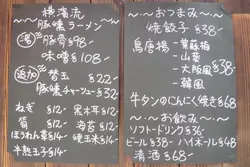 横濱流
~・~豚燻ラーメン~・~
湯 豚骨 $98-
味噌 $108-
追加 替玉 $22-
豚燻チャーシュー $32-
ねぎ $12-
黒木耳 $12-
筍 $12-
海苔 $12-
ほうれん草 $14-
焼玉米 $14-
半熟玉子 $14-
~・~おつまみ~・~
焼餃子 $38-
鳥唐揚
大阪風
韓国
$38-
牛タンのにんにく焼き $68
~・~お飲み~・~
ソフトードリンク $36-
ビール $38- ハイボール $48
清酒 $68-